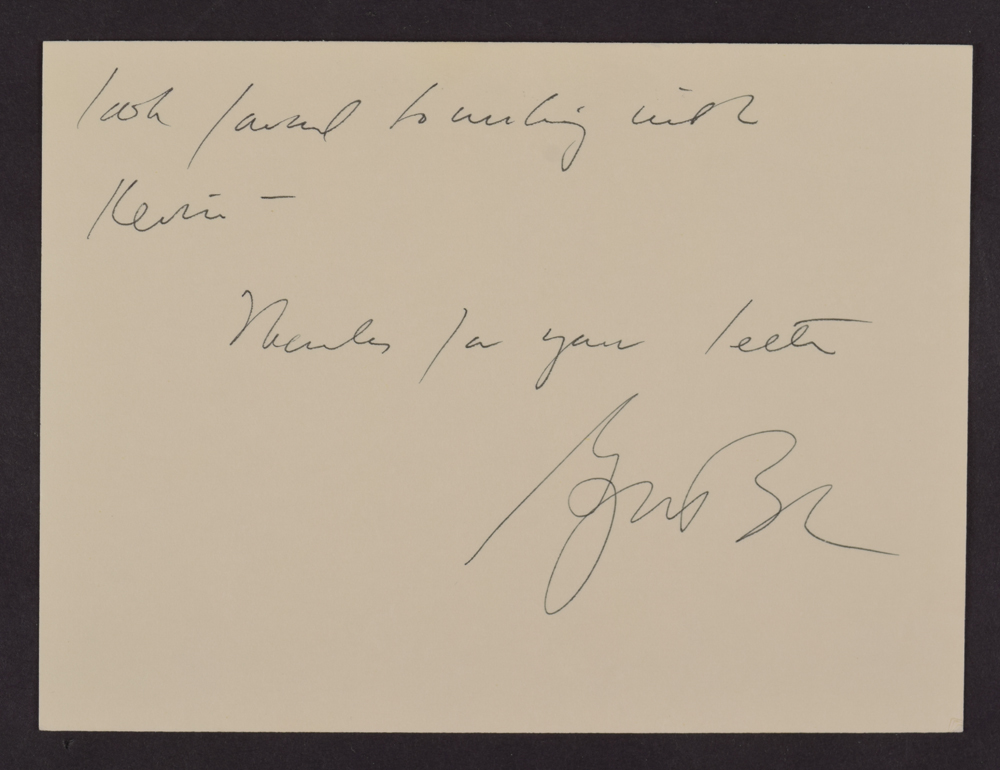 look forward to working with
Kevin —
Thanks for your letter